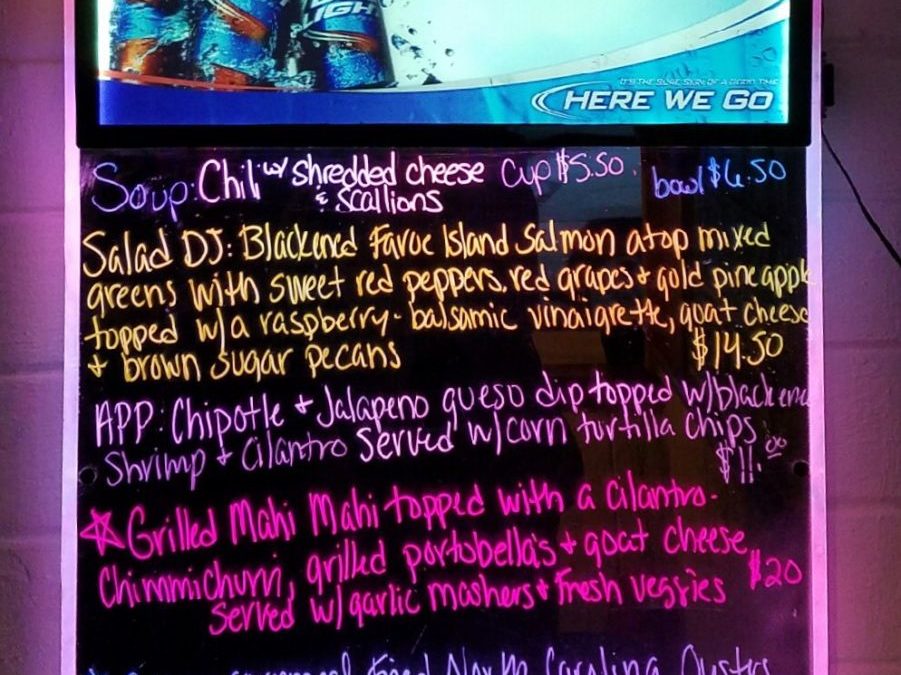 LIGH
IT'S THE SURE SIGN OF A GOOD TIME
HERE WE GO
Soup: Chili w/ shredded cheese & scallions cup $5.50. bowl $6.50
Salad DJ: Blackened Faroe Island Salmon atop mixed
greens with sweet red peppers, red grapes & gold pineapple
topped w/a raspberry-balsamic vinaigrette, goat cheese
& brown sugar pecans $14.50
APP: Chipotle & Jalapeno queso dip topped w/blackend
Shrimp & Cilantro Served w/corn tortilla chips
$11.00
Grilled Mahi Mahi topped with a cilantro-
Chimmichurri, grilled portobella's & goat cheese
served w/ garlic mashers & Fresh veggies $20
fried North Carolina Oysters